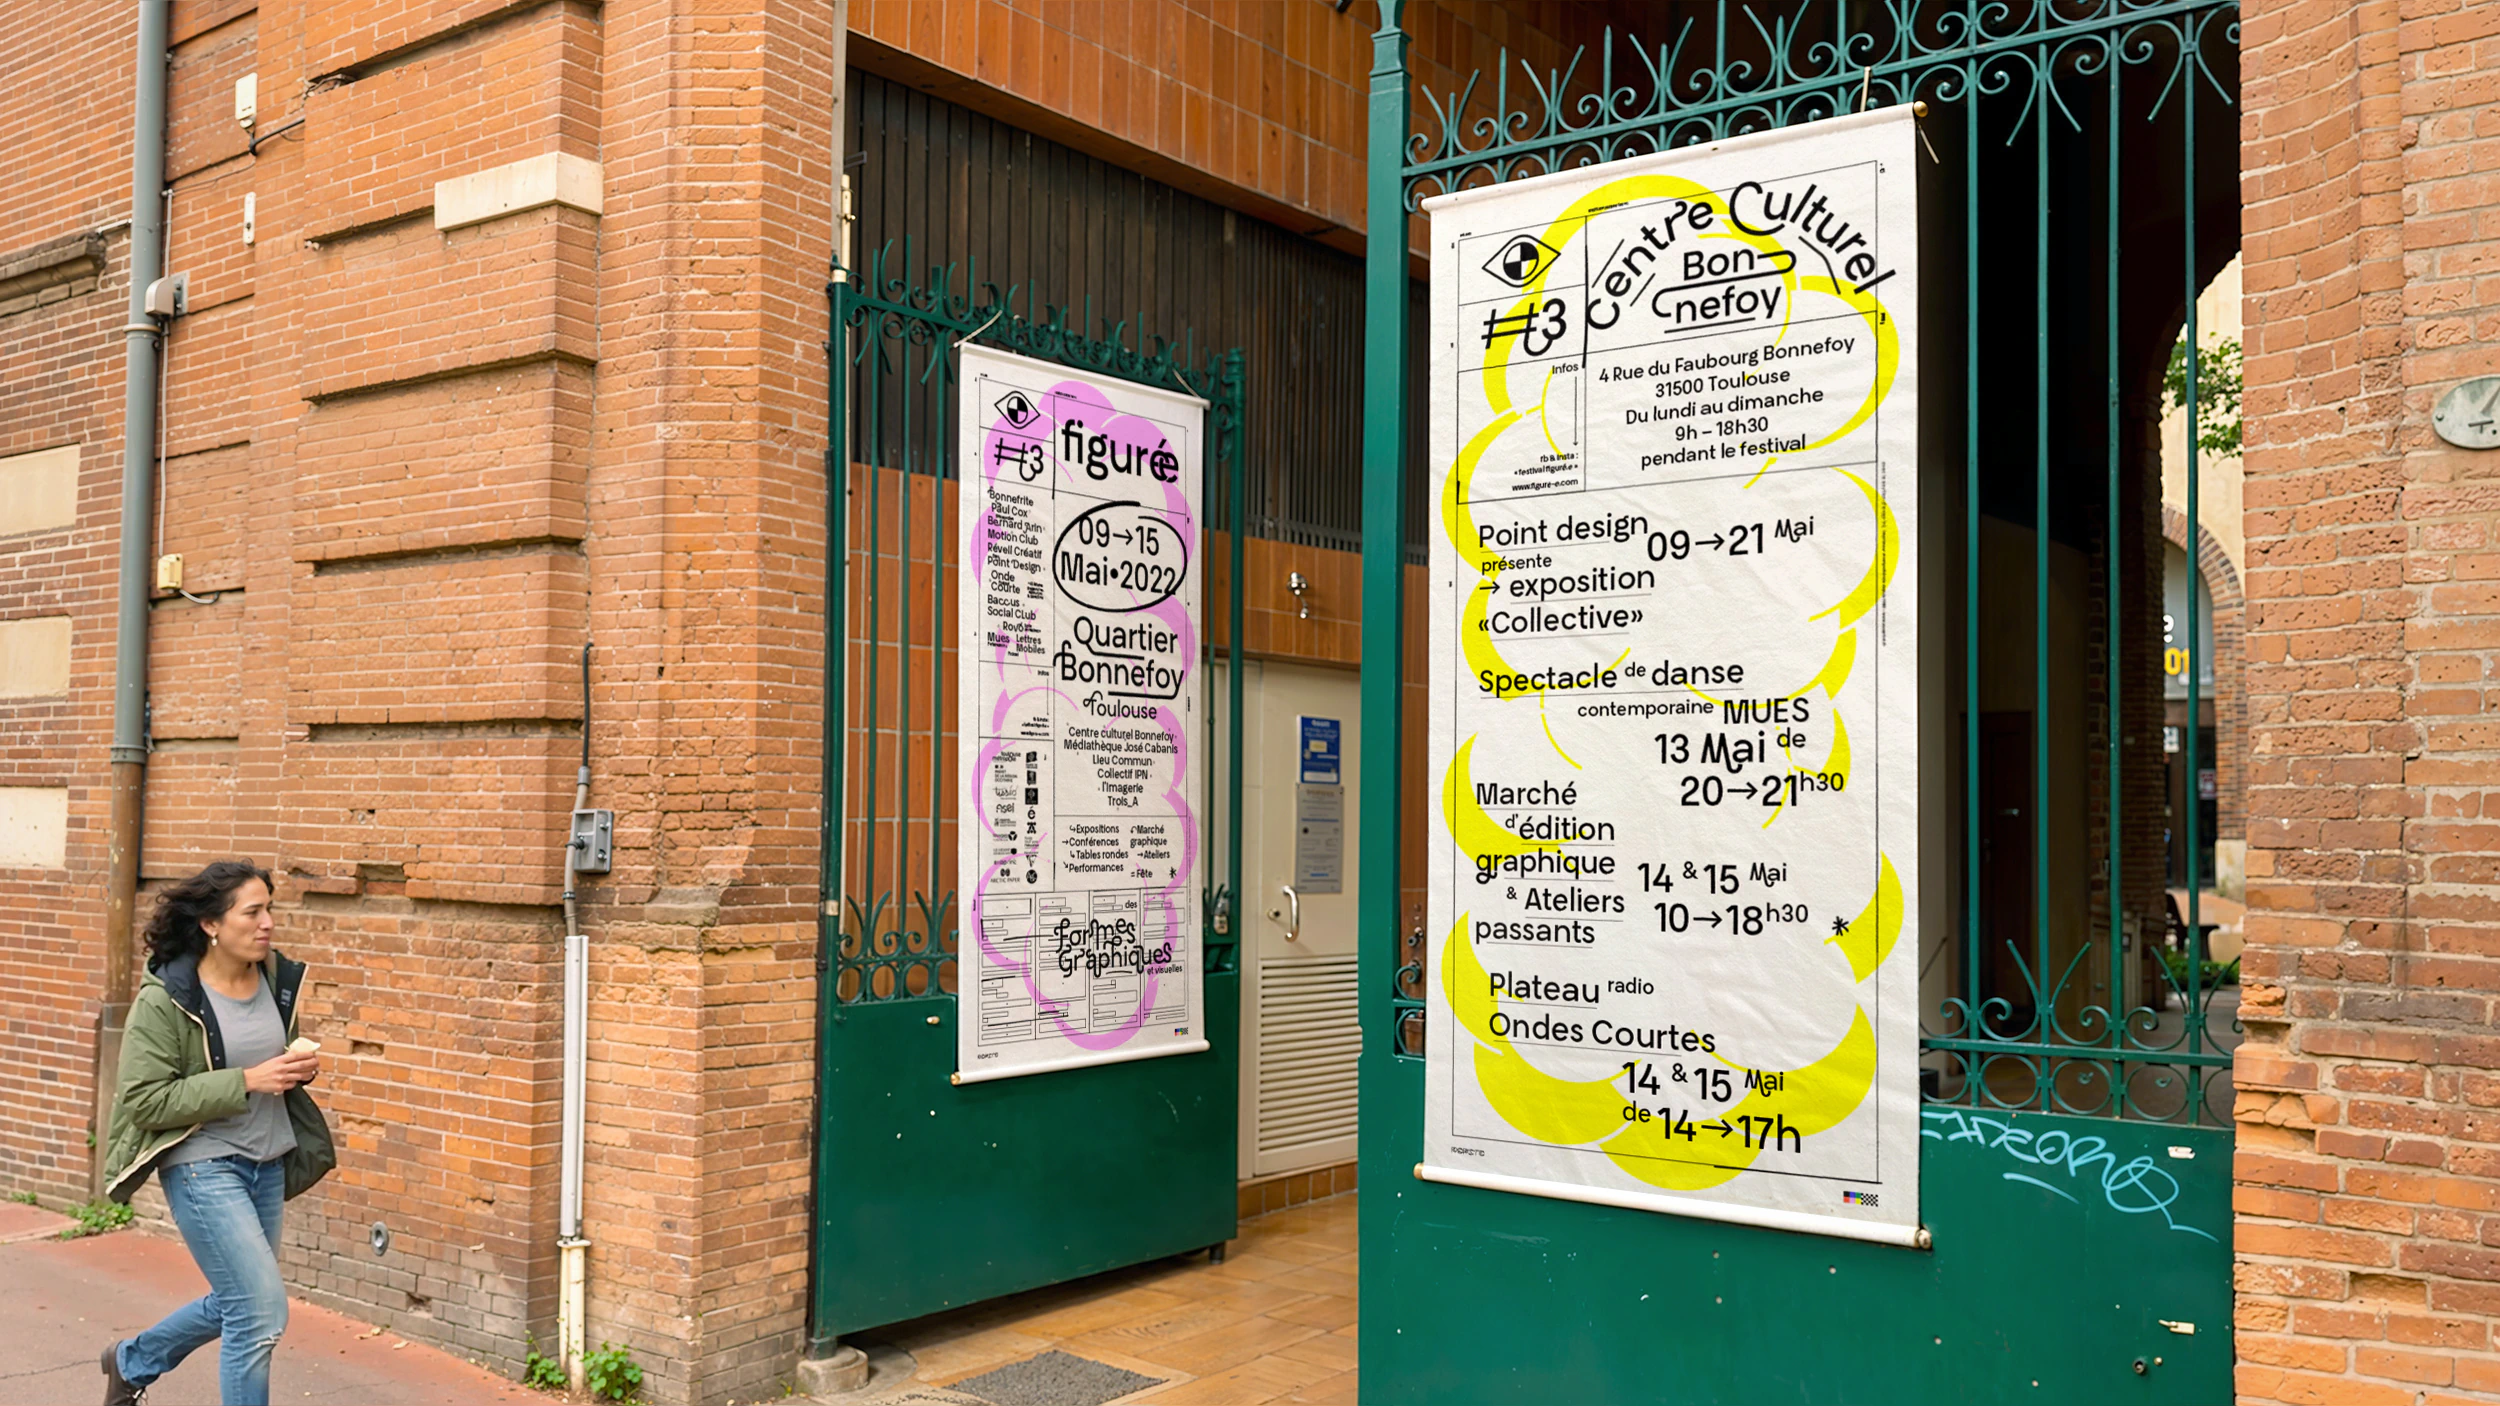 figurée
#3
09→15
Mai•2022
Bonnefrite
Paul Cox
Bernard Arin
Motion Club
Réveil Créatif
Point Design
Onde
Courte
Baccus
Social CLub
Rovo
Mues Lettres
Mobiles
Quartier
Bonnefoy
Toulouse
Infos
Centre culturel Bonnefoy
Médiathèque José Cabanis
Lieu Commun
Collectif IPN
l'Imagerie
Trois_A
↪Expositions
→Conférences
↳Tables rondes
↘Performances
Marché
graphique
→Ateliers
=Fête *
des
formes
Graphiques
et visuelles
Centre Culturel
Bon-
nefoy
#3
Infos
fb & insta :
« festivalfiguré.e »
www.figure-e.com
4 Rue du Faubourg Bonnefoy
31500 Toulouse
Du lundi au dimanche
9h – 18h30
pendant le festival
Point design 09→21 Mai
présente
→ exposition
«Collective»
Spectacle de danse
contemporaine MUES
13 Mai de
20→21h30
Marché
d'édition
graphique
& Ateliers
passants
14 & 15 Mai
10→18h30 *
Plateau radio
Ondes Courtes
14 & 15 Mai
de 14→17h